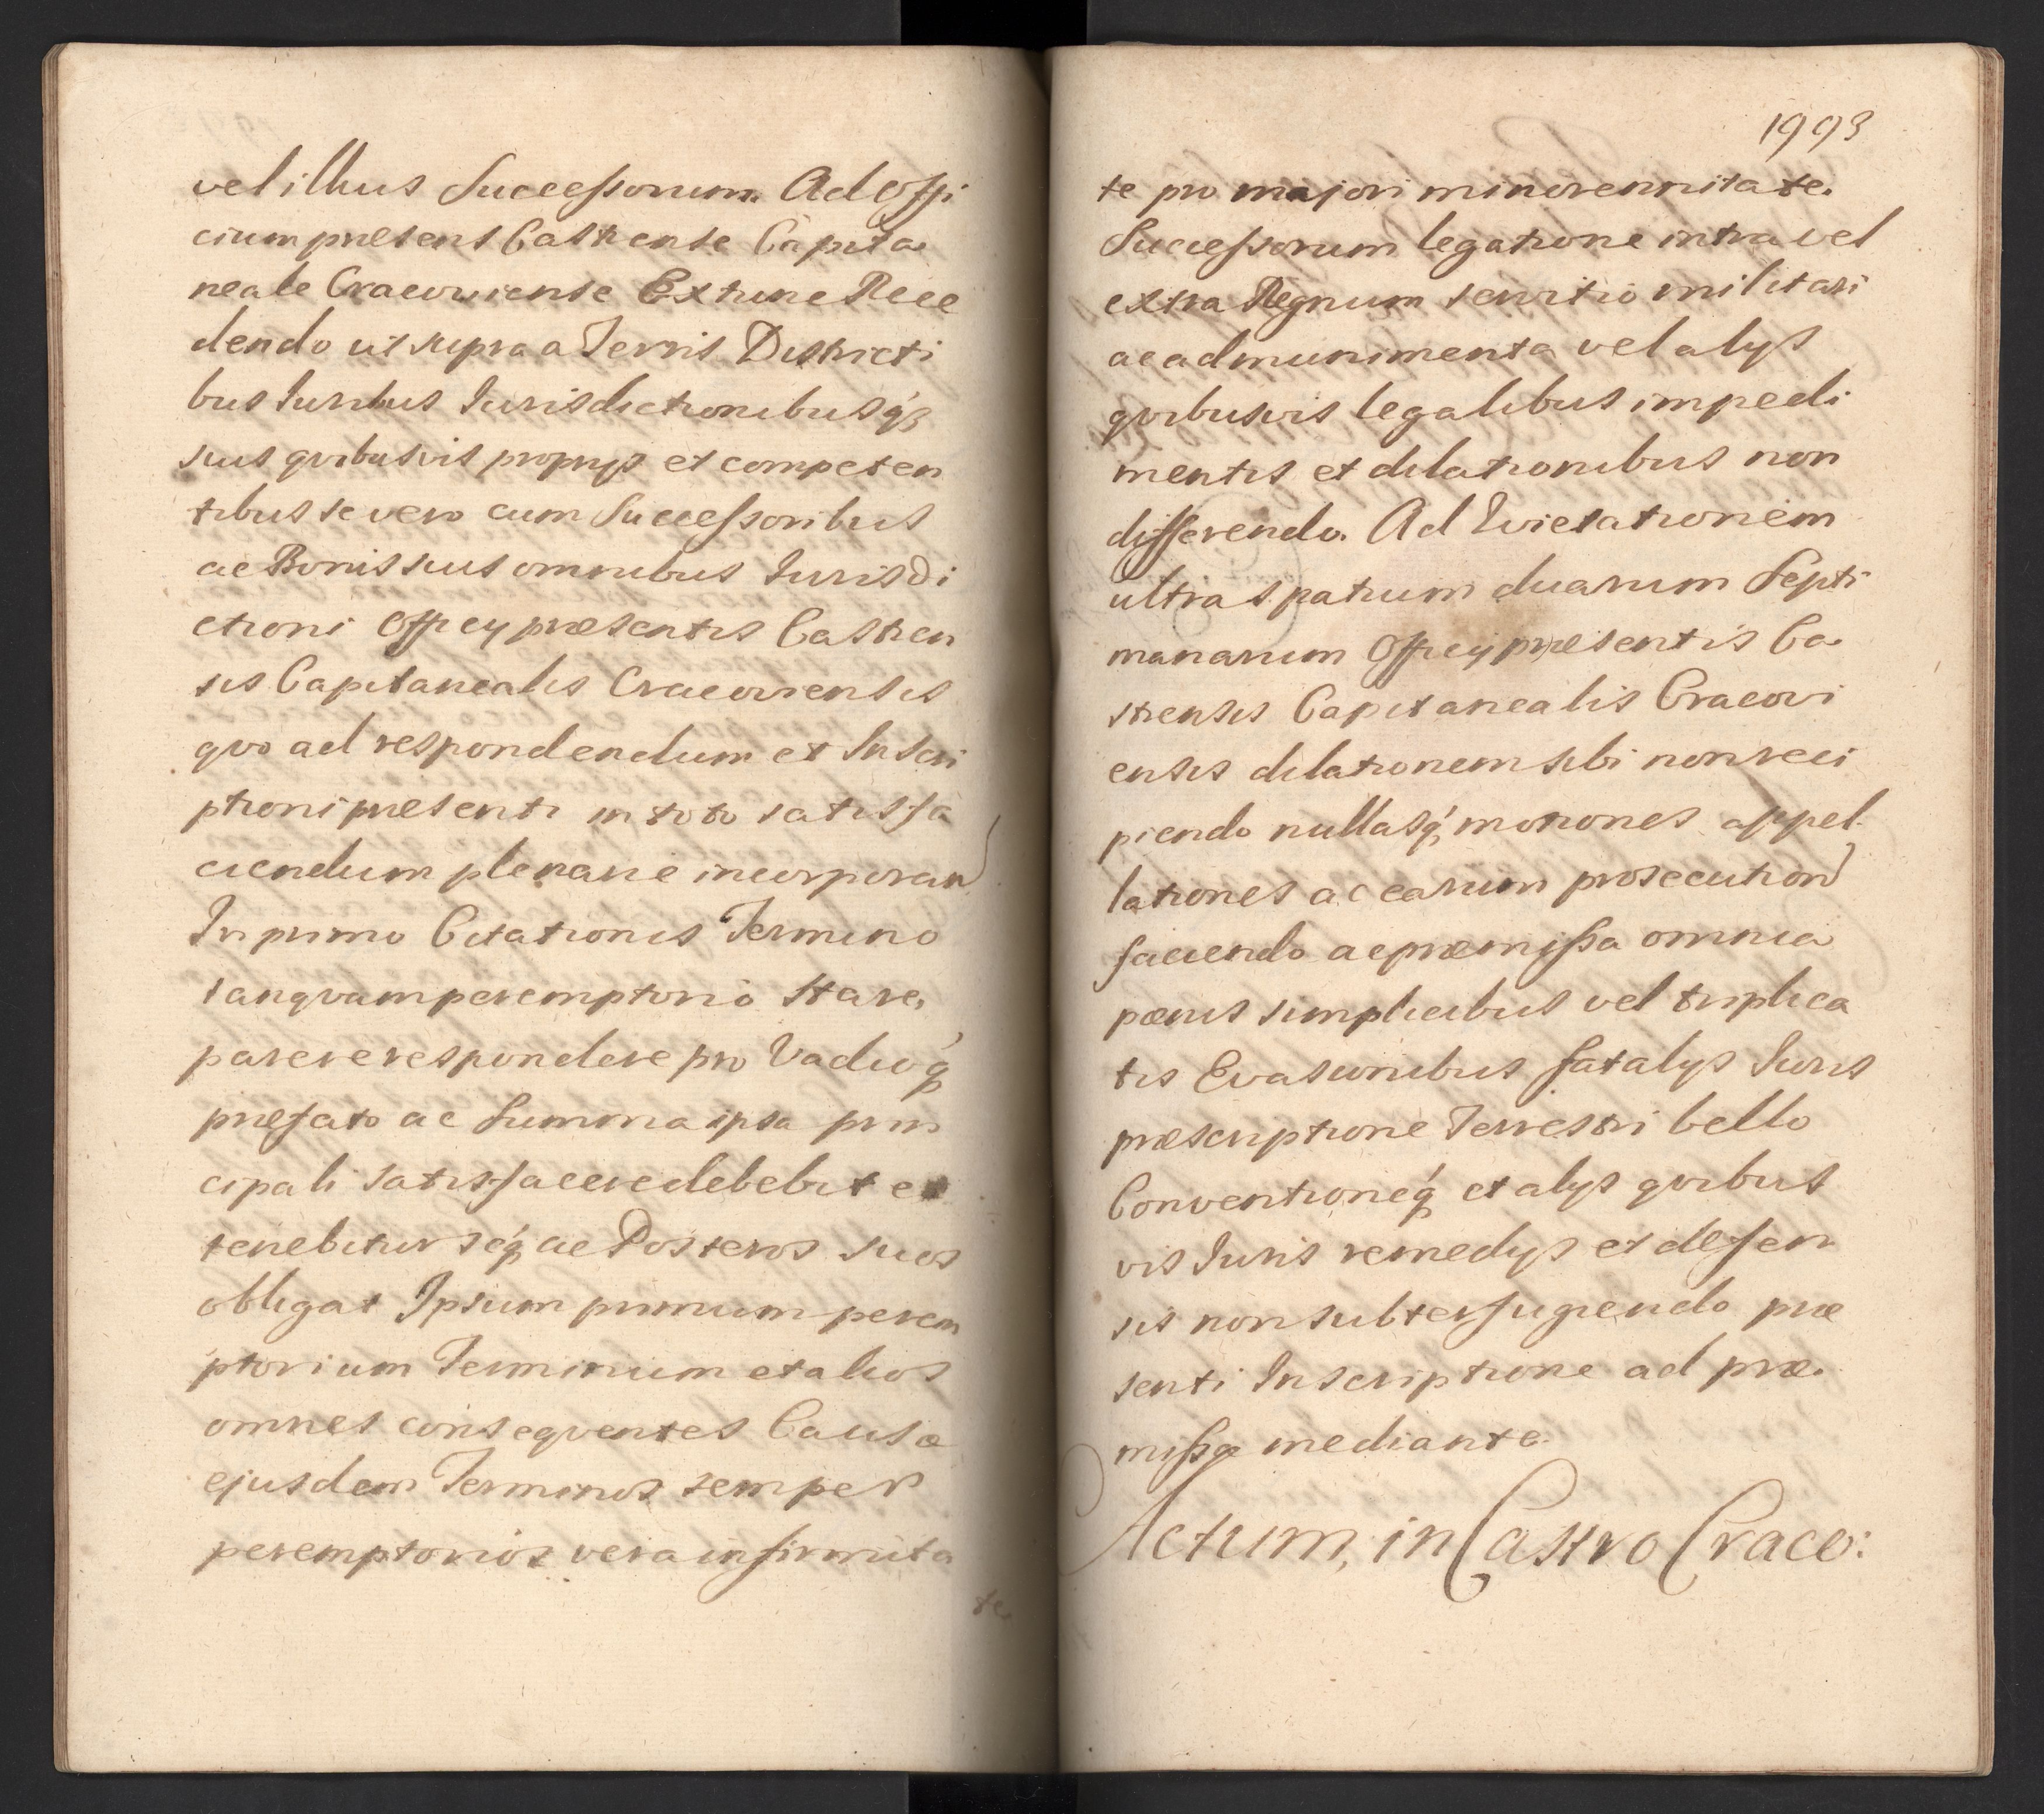 vel illius Successorum. Ad Offi
cium præsens Castrense Capita
neale Cracoviense Extunc Rece
dendo ut supra a Terris Districti
bus Iuribus Iurisdictionibusq́₃
suis qvibusvis proprijs et competen
tibus se vero cum Successoribus
ac Bonis suis omnibus Iurisdi
ctioni Officij præsentis Castren
sis Capitanealis Cracoviensis
qvo ad respondendum et Inscri
ptioni præsenti in toto satisfa
ciendum plenarie incorporan
In primo Citationis Termino
tanqvam peremptorio stare,
parere respondere pro Vadioq́
præfato ac Summa ipsa prin
cipali satisfacere debebit et
tenebitur seq́ ac Posteros suos
obligat Ipsum primum perem
ptorium Terminum et alios
omnes conseqventes Causæ
ejusdem Terminos semper
peremptorios vera infirmita
te
1993
te pro majori minorennitate.
Successorum legatione intra vel
extra Regnum servitio militari
ac ad munimenta vel alijs
qvibusvis legalibus impedi
mentis et dilationibus non
differendo. Ad Evictationem
ultra spatium duarum Septi
manarum Officij præsentis Ca
strensis Capitanealis Cracovi
ensis dilationem sibi non reci
piendo nullasq́ motiones appel
lationes ac earum prosecution
faciendo ac præmissa omnia
pœnis simplicibus vel triplica
tis Evasionibus fatalijs Iuris
præscriptione Terrestri bello
Conventioneq́ et alijs qvibus
vis Iuris remedijs et defen
sis non subterfugiendo præ
senti Inscriptione ad præ
missa mediante.
Actum, in Castro Craco: